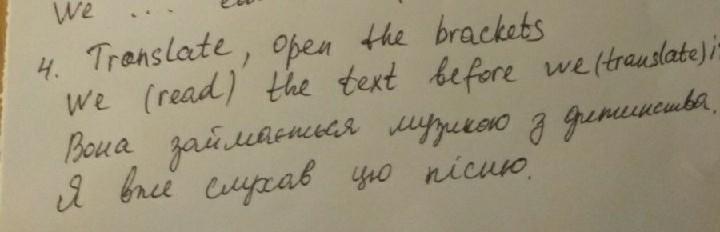 We ...
4. Translate, open the brackets
We (read) the text before we (translate) i
Вона займається музикою з дитинства.
Я вже слухав цю пісню.